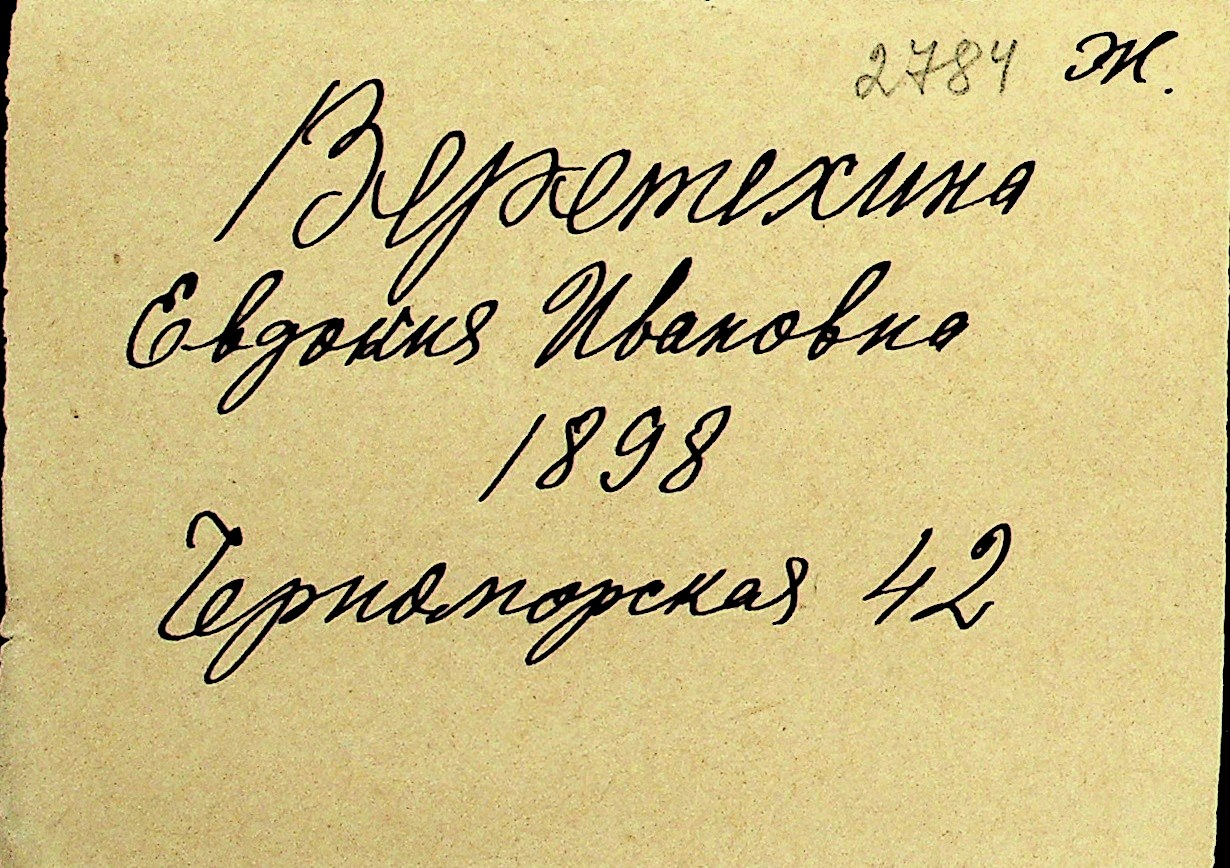 2784 Ж.
Веретехина
Евдокия Ивановна
1898
Черноморская 42